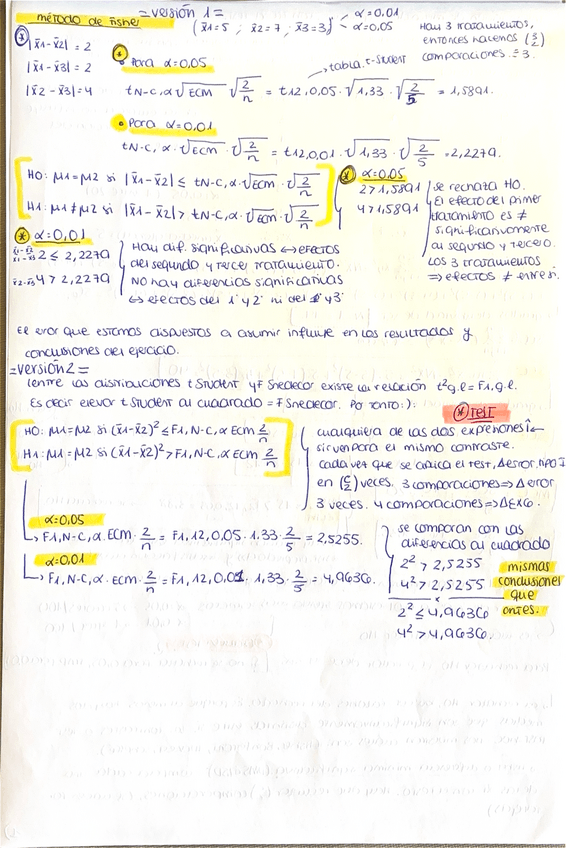 método de Fisher
=versión 1=
(x̄1=5 ; x̄2=7 ; x̄3=3)
α=0.01
α=0.05
Hay 3 tratamientos,
entonces hacemos (3/2)
comparaciones = 3.
|x̄1-x̄2| = 2
|x̄1-x̄3| = 2
|x̄2-x̄3| = 4
Para α=0,05
tabla t-Student
tN-C, α √ECM √2/n = t12,0.05 · √1,33 · √2/5 = 1,5891.
Para α=0.01
tN-C, α · √ECM · √2/n = t12,0,01 · √1,33 · √2/5 = 2,2279.
H0: μ1=μ2 si |x̄1-x̄2| ≤ tN-C, α · √ECM · √2/n
H1: μ1≠μ2 si |x̄1-x̄2| > tN-C, α · √ECM · √2/n
α=0.05
2 > 1,5891
4 > 1,5891
se rechaza H0.
El efecto del primer
tratamiento es ≠
significativamente
al segundo y tercero.
Los 3 tratamientos
⇒ efectos ≠ entre sí.
α=0,01
x̄1-x̄2
x̄1-x̄3 2 ≤ 2,2279
x̄2-x̄3 4 > 2,2279
Hay dif. significativas ↔ efectos
del segundo y tercer tratamiento.
No hay diferencias significativas
↔ efectos del 1º y 2º ni del 1º y 3º
El error que estamos dispuestos a asumir influye en los resultados y
conclusiones del ejercicio.
=versión 2=
(entre las distribuciones t Student y F Snedecor existe la relación t²g.l = F1,g.l.
Es decir elevar t Student al cuadrado = F Snedecor. Por tanto:):
TEST
H0: μ1=μ2 si (x̄1-x̄2)² ≤ F1, N-C, α ECM 2/n
H1: μ1=μ2 si (x̄1-x̄2)² > F1, N-C, α ECM 2/n
cualquiera de las dos expresiones
sirven para el mismo contraste.
Cada vez que se aplica el test, Δ error, tipo I
en (C/2) veces. 3 comparaciones ⇒ Δ error
3 veces. 4 comparaciones ⇒ Δ Ex6.
α=0.05
F1, N-C, α. ECM · 2/n = F1, 12, 0.05 · 1.33 · 2/5 = 2,5255.
α=0.01
F1, N-C, α · ECM · 2/n = F1, 12, 0,01 · 1,33 · 2/5 = 4,9636.
se comparan con las
diferencias al cuadrado
2² > 2,5255
4² > 2,5255
2² ≤ 4,9636
4² > 4,9636.
mismas
conclusiones
que
antes.